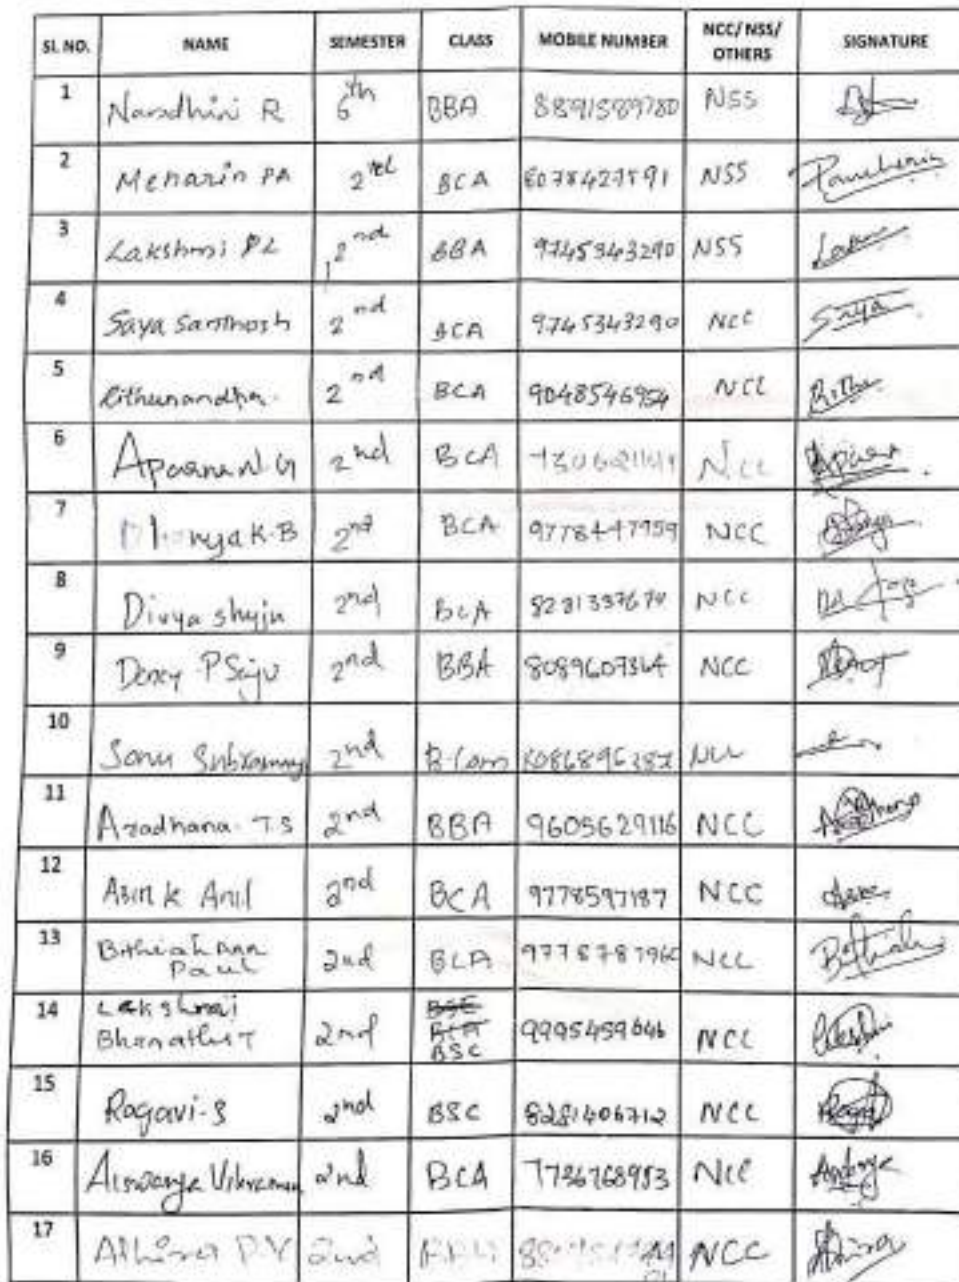 SL NO. NAME SEMESTER CLASS MOBILE NUMBER NCC/NSS/ OTHERS SIGNATURE
1 Nandhini R 6th BBA 8891589780 NSS
2 Meharin PA 2nd BCA 8078427591 NSS
3 Lakshmi PL 2nd BBA 9745343290 NSS
4 Saya Santhosh 2nd BCA 9745343290 NCC Saya
5 Rithunandha 2nd BCA 9048546954 NCC Rithu
6 Aparna N G 2nd BCA NCC
7 K.B 2nd BCA 9778447959 NCC
8 Divya shyju 2nd BCA NCC
9 P Saju 2nd BBA 8089607364 NCC
10 Sonu 2nd B.Com 8086896287 NCC
11 Aradhana. T.S 2nd BBA 9605629116 NCC
12 Asin K Anil 2nd BCA 9778597187 NCC
13 Bithiah Ann
Paul 2nd BCA NCC
14 Lakshmi
Bharathi T 2nd BSC
BCA
BSC 9995459646 NCC
15 Ragavi-S 2nd BSC 8281406712 NCC
16 Aiswarya Vikraman 2nd BCA 7736768983 NCC
17 Athira P.V 2nd NCC Athira